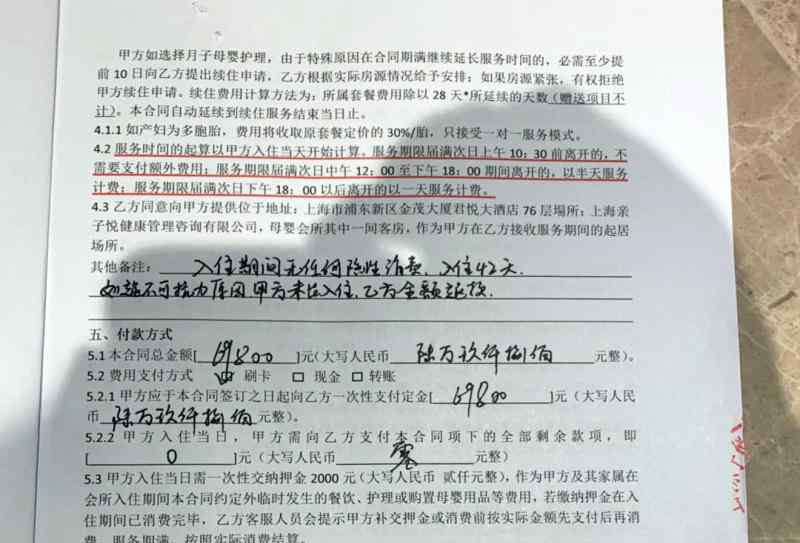 甲方如选择月子母婴护理，由于特殊原因在合同期满继续延长服务时间的，必需至少提
前 10 日向乙方提出续住申请，乙方根据实际房源情况给予安排；如果房源紧张，有权拒绝
甲方续住申请。续住费用计算方法为：所属套餐费用除以 28 天*所延续的天数（赠送项目不
计）。本合同自动延续到续住服务结束当日止。
4.1.1 如产妇为多胞胎，费用将收取原套餐定价的 30%/胎，只接受一对一服务模式。
4.2 服务时间的起算以甲方入住当天开始计算。服务期限届满次日上午 10：30 前离开的，不
需要支付额外费用；服务期限届满次日中午 12：00 至下午 18：00 期间离开的，以半天服务
计费；服务期限届满次日下午 18：00 以后离开的以一天服务计费。
4.3 乙方同意向甲方提供位于地址：上海市浦东新区金茂大厦君悦大酒店 76 层場所：上海亲
子悦健康管理咨询有限公司，母婴会所其中一间客房，作为甲方在乙方接收服务期间的起居
场所。
其他备注： 入住期间无任何隐性消费，入住42天.
如超不可抗力原因，甲方未能入住，乙方全额退款.
五、付款方式
5.1 本合同总金额[ 69800 ]元（大写人民币 陆万玖仟捌佰 元整）。
5.2 费用支付方式 刷卡 □ 现金 □ 转账
5.2.1 甲方应于本合同签订之日起向乙方一次性支付定金[ 69800 ]元（大写人民
币 陆万玖仟捌佰 元整）。
5.2.2 甲方入住当日，甲方需向乙方支付本合同项下的全部剩余款项，即
[ 0 ]元（大写人民币 零 元整）
5.3 甲方入住当日需一次性交纳押金 2000 元（大写人民币 贰仟元整），作为甲方及其家属在
会所入住期间本合同约定外临时发生的餐饮、护理或购置母婴用品等费用，若缴纳押金在入
住期间已消费完毕，乙方客服人员会提示甲方补交押金或消费前按实际金额先支付后再消
费，服务期满，按照实际消费结算。